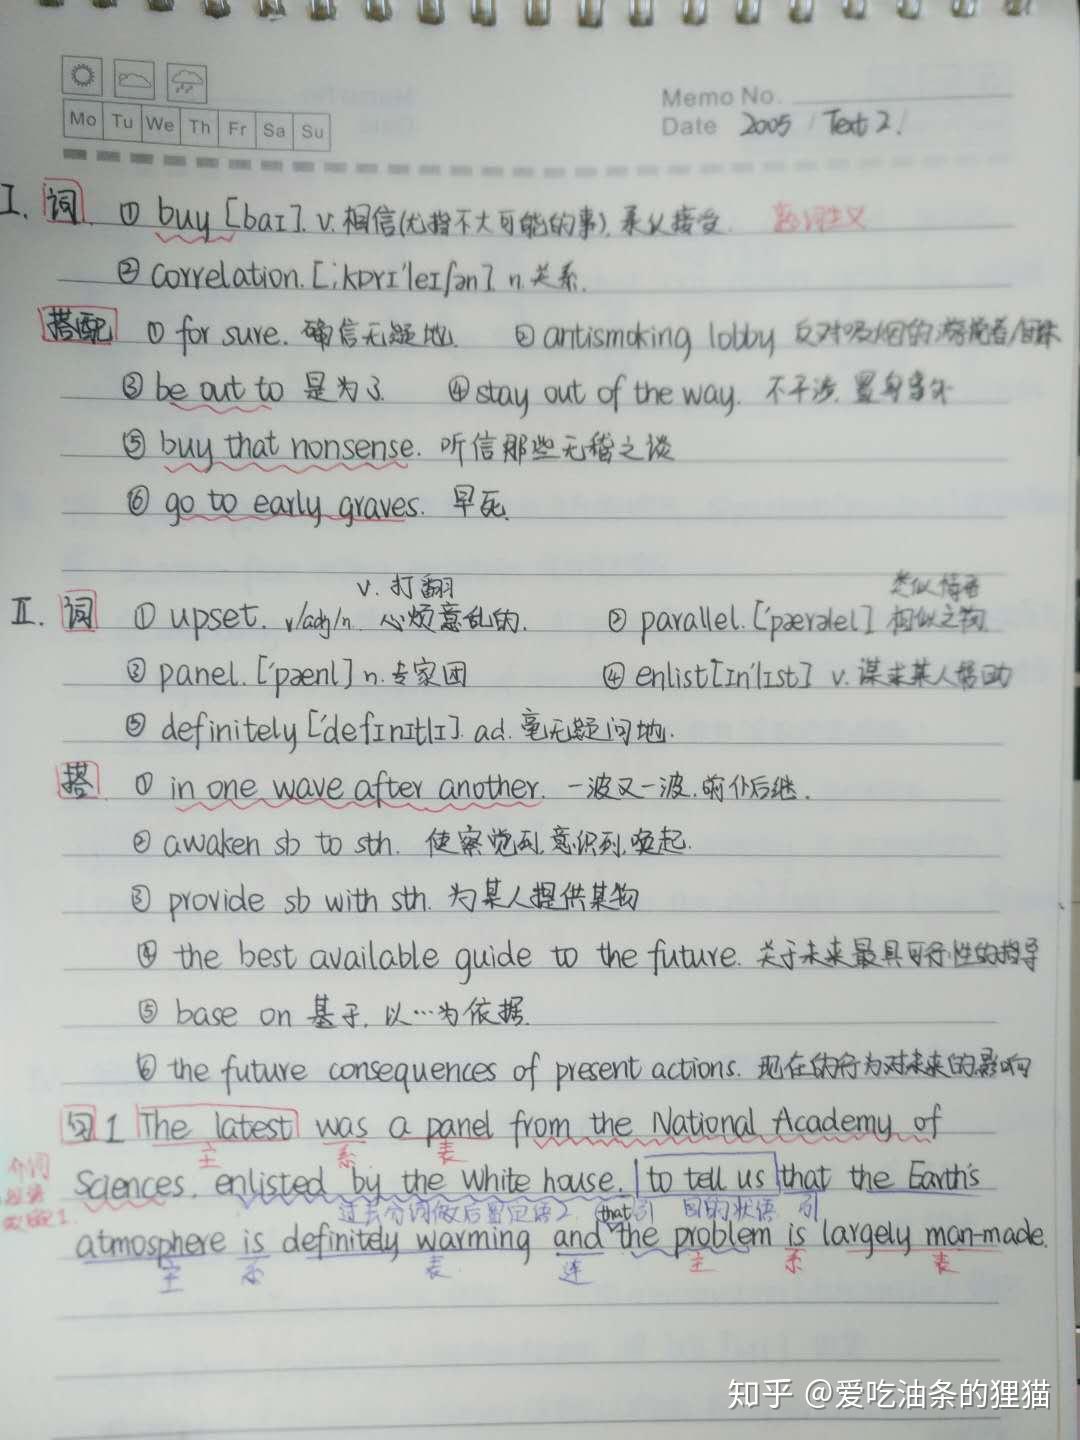 Memo No.
Mo Tu We Th Fr Sa Su
Date 2005 / Text 2 /
I. 词 ① buy [baɪ]. v. 相信(尤指不大可能的事), 接受. 熟词生义
② correlation. [ˌkɒrɪ'leɪʃən]. n. 关系.
搭配 ① for sure. 确信无疑地. ② antismoking lobby 反对吸烟的游说者/团体
③ be out to 是为了. ④ stay out of the way. 不干涉. 置身事外
⑤ buy that nonsense. 听信那些无稽之谈
⑥ go to early graves. 早死.
v. 打翻 类似情
II. 词 ① upset. v/adj/n. 心烦意乱的. ② parallel. ['pærəlel] 相似之物.
③ panel. ['pænl] n. 专家团 ④ enlist [ɪn'lɪst] v. 谋求某人帮助
⑤ definitely ['defɪnɪtlɪ]. ad. 毫无疑问地.
搭 ① in one wave after another. 一波又一波. 前仆后继.
② awaken sb to sth. 使察觉到, 意识到, 唤起.
③ provide sb with sth. 为某人提供某物
④ the best available guide to the future. 关于未来最具可行性的指导
⑤ base on 基于, 以…为依据.
⑥ the future consequences of present actions. 现在的行为对未来的影响
句 1 The latest was a panel from the National Academy of
主 系 表
介词
Sciences, enlisted by the White house, to tell us that the Earth's
定语1.
过去分词做后置定语2 that引 目的状语 引
atmosphere is definitely warming and the problem is largely man-made.
主 系 表 连 主 系 表
知乎 @爱吃油条的狸猫